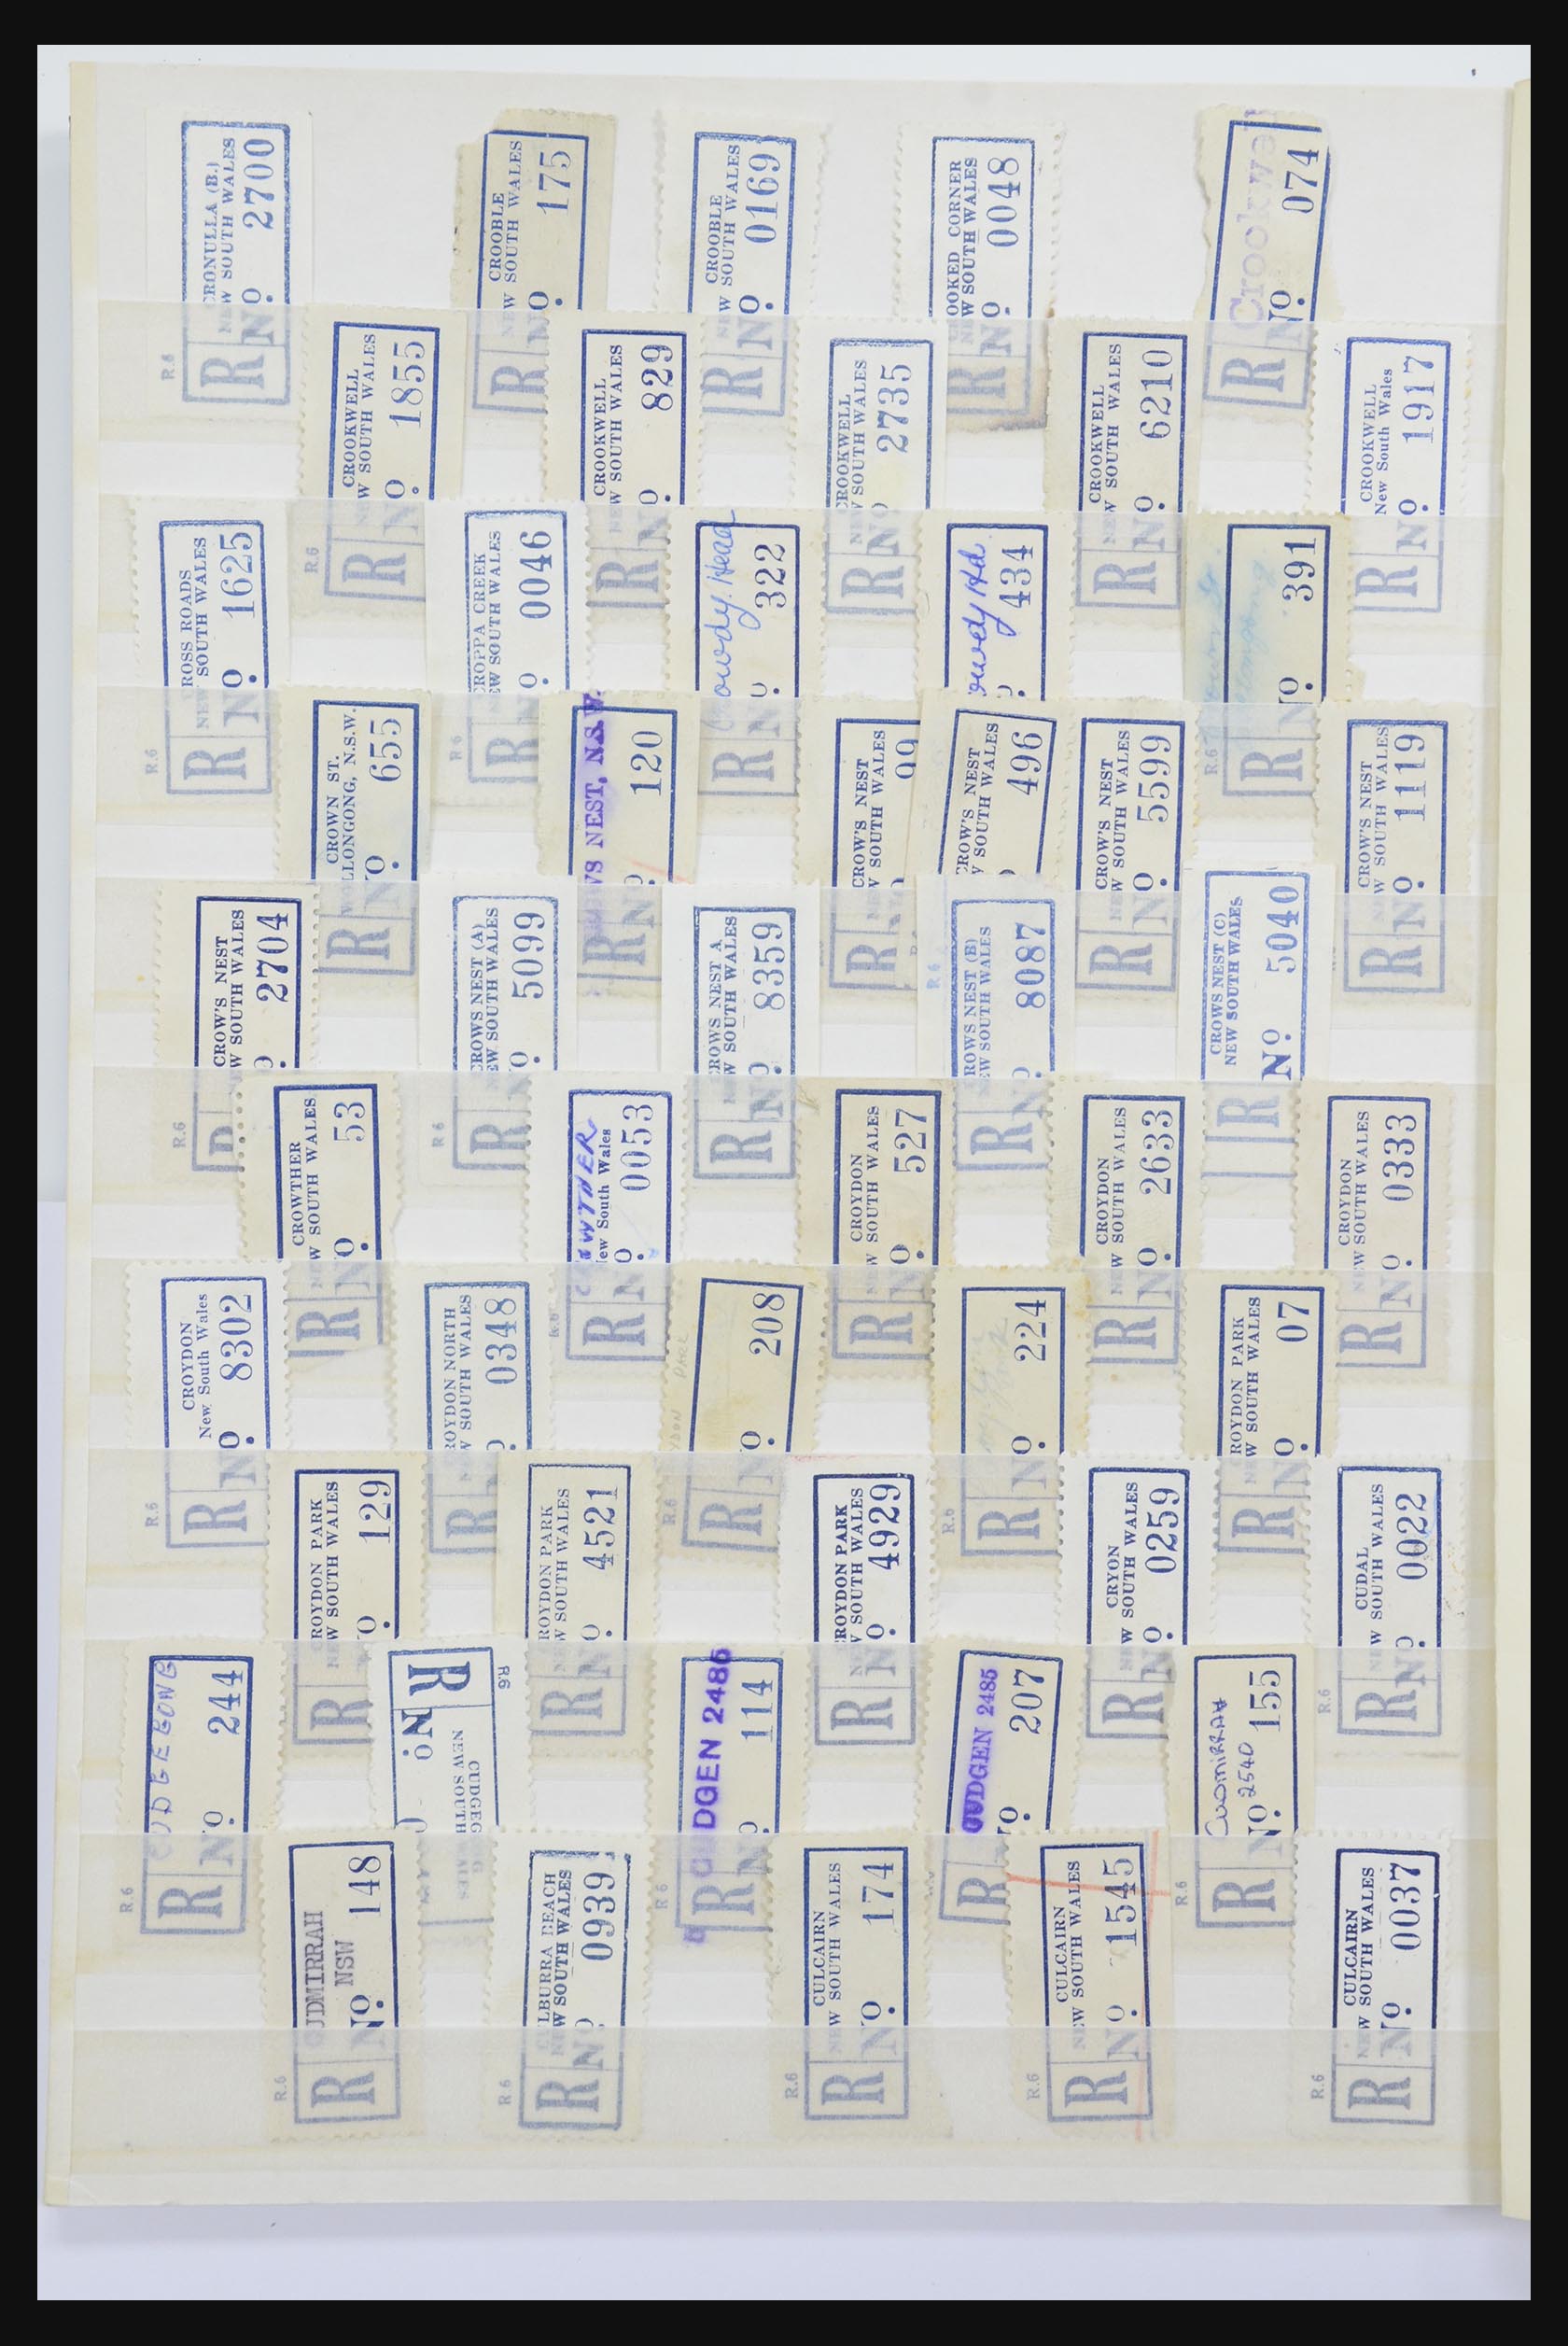 CRONULLA (B.)
NEW SOUTH WALES
R No 2700
R.6
CROOBLE
NEW SOUTH WALES
R No. 175
CROOBLE
NEW SOUTH WALES
R No. 0169
CROOKED CORNER
NEW SOUTH WALES
R No. 0048
Crookwe
R No. 074
CROOKWELL
NEW SOUTH WALES
R No. 1855
R.6
CROOKWELL
NEW SOUTH WALES
R No. 829
CROOKWELL
NEW SOUTH WALES
R No 2735
CROOKWELL
NEW SOUTH WALES
R No. 6210
CROOKWELL
New South Wales
R No. 1917
CROSS ROADS
NEW SOUTH WALES
R No. 1625
R.6
CROPPA CREEK
NEW SOUTH WALES
R No. 0046
R.6
Crowdy Head
R No. 322
Crowdy Hd
434
R No. 391
R.6
CROWN ST.
WOLLONGONG, N.S.W.
R No. 655
NEST, N.S.W.
R No. 120
CROW'S NEST
NEW SOUTH WALES
R No 99
CROW'S NEST
NEW SOUTH WALES
496
CROW'S NEST
NEW SOUTH WALES
R No. 5599
CROW'S NEST
NEW SOUTH WALES
R No. 1119
CROW'S NEST
NEW SOUTH WALES
2704
R.6
CROWS NEST (A)
NEW SOUTH WALES
R No. 5099
R.6
CROWS NEST A
NEW SOUTH WALES
R No 8359
CROWS NEST (B)
NEW SOUTH WALES
R No 8087
R.6
CROWS NEST (C)
NEW SOUTH WALES
R No. 5040
CROWTHER
NEW SOUTH WALES
R No. 53
CROWTHER
New South Wales
R No. 0053
R.6
CROYDON
NEW SOUTH WALES
R No. 527
CROYDON
NEW SOUTH WALES
R No. 2633
CROYDON
NEW SOUTH WALES
R No. 0333
CROYDON
New South Wales
R No. 8302
R.6
CROYDON NORTH
NEW SOUTH WALES
R No 0348
R No. 208
R.6
R No. 224
R.6
CROYDON PARK
NEW SOUTH WALES
R No. 07
CROYDON PARK
NEW SOUTH WALES
R No. 129
CROYDON PARK
NEW SOUTH WALES
R No. 4521
CROYDON PARK
NEW SOUTH WALES
R No. 4929
CRYON
NEW SOUTH WALES
R No. 0259
CUDAL
NEW SOUTH WALES
R No 0022
R.6
CUDGEGONG
R No. 244
R.6
R No.
R6
CUDGEG
NEW SOUTH
CUDGEN 2486
R No 114
R.6
CUDGEN 2485
R No. 207
CUDMIRRAH
2540
R No. 155
R.6
CUDMIRRAH
NSW
R No. 148
R.6
CULBURRA BEACH
NEW SOUTH WALES
R No 0939
R.6
CULCAIRN
NEW SOUTH WALES
R No. 174
R.6
CULCAIRN
NEW SOUTH WALES
R No. 1545
R.6
CULCAIRN
NEW SOUTH WALES
R No. 0037
R.6